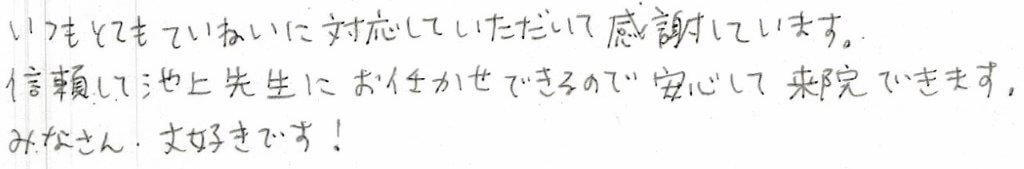 いつもとてもていねいに対応していただいて感謝しています。
信頼して池上先生にお任かせできるので安心して来院できます。
みなさん、大好きです！